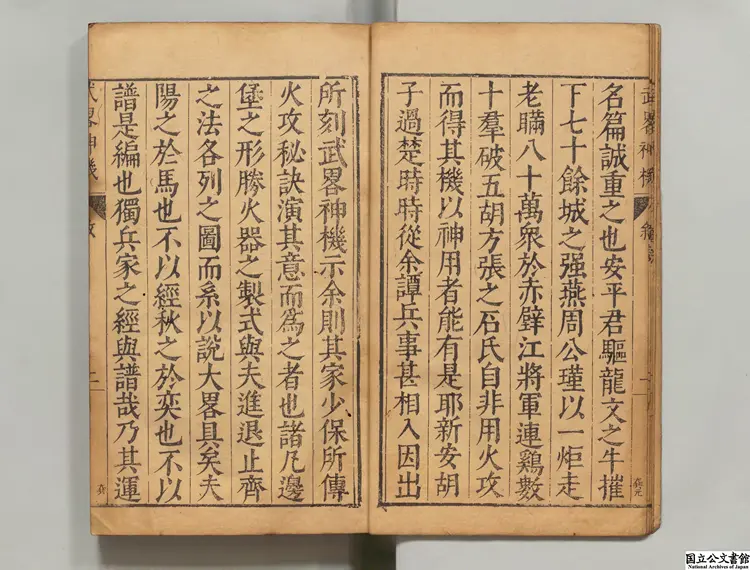 名篇誠重之也安平君驅龍文之牛摧
下七十餘城之强燕周公瑾以一炬走
老瞞八十萬衆於赤壁江將軍連鷄數
十羣破五胡方張之石氏自非用火攻
而得其機以神用者能有是耶新安胡
子過楚時時從余譚兵事甚相入因出
所刻武畧神機示余則其家少保所傳
火攻秘訣演其意而為之者也諸凡邊
堡之形勝火器之製式與夫進退止齊
之法各列之圖而系以說大畧具矣夫
陽之於馬也不以經秋之於奕也不以
譜是編也獨兵家之經與譜哉乃其運
武畧神機
二
国立公文書館
National Archives of Japan